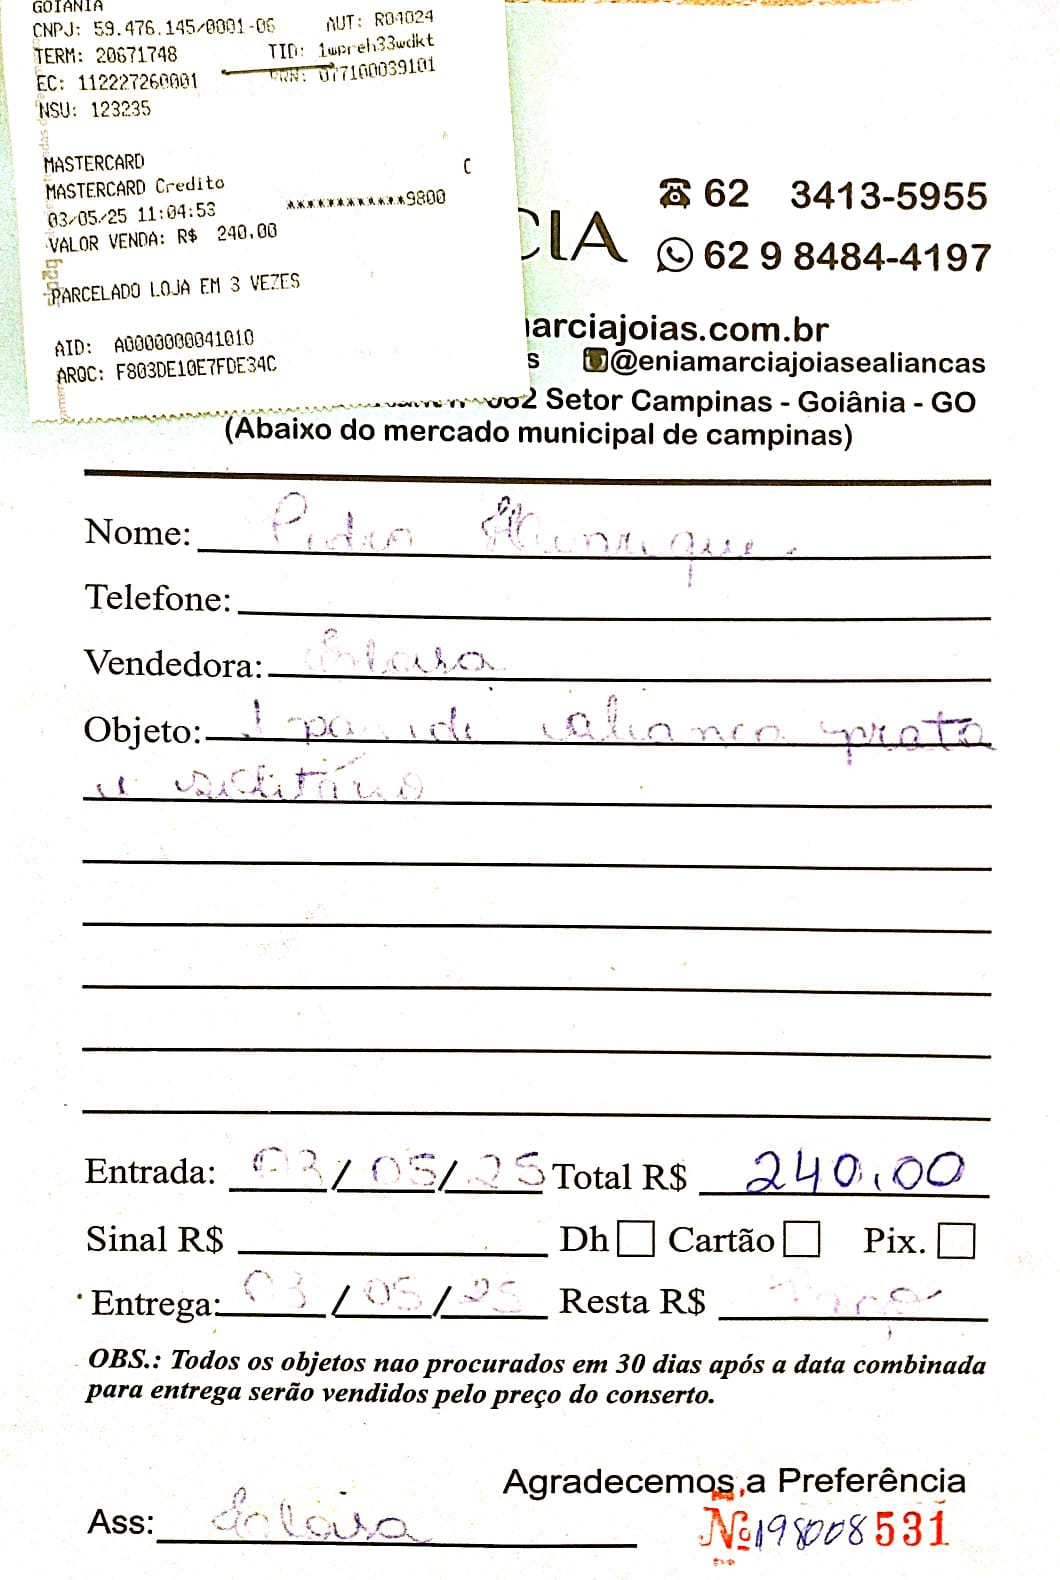 GOIANIA
CNPJ: 59.476.145/0001-06 AUT: R04024
TERM: 20671748 TID: 1wpreh33wdkt
EC: 112227260001 077100039101
NSU: 123235
MASTERCARD
C
MASTERCARD Credito
03/05/25 11:04:53 ************9800
VALOR VENDA: R$ 240,00
PARCELADO LOJA EM 3 VEZES
AID: A0000000041010
ARQC: F803DE10E7FDE34C
CIA
62 3413-5955
62 9 8484-4197
arciajoias.com.br
s @eniamarciajoiasealiancas
Setor Campinas - Goiânia - GO
(Abaixo do mercado municipal de campinas)
Nome: Pedro Henrique
Telefone:
Vendedora:
Objeto: 1 par de aliança prata
e solitário
Entrada: 03/05/25 Total R$ 240,00
Sinal R$ Dh Cartão Pix.
Entrega: 03/05/25 Resta R$ Pago
OBS.: Todos os objetos nao procurados em 30 dias após a data combinada
para entrega serão vendidos pelo preço do conserto.
Agradecemos a Preferência
Ass:
Nº 198008531